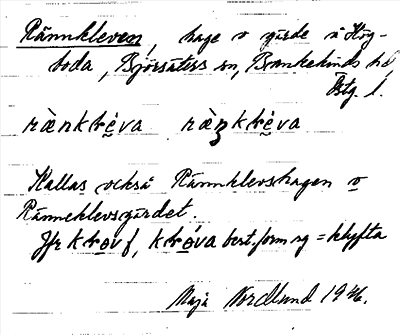 Rännkleven, hage o gärde å Hög-
boda, Björsäters sn, Bankekinds hd
Östg. l.
rænkrèva rænkrèva
Kallas också Rännklevshagen o
Ränneklevsgärdet.
Jfr krøv f, krøva best. form sg = klyfta
Maja Nordlund 1946.